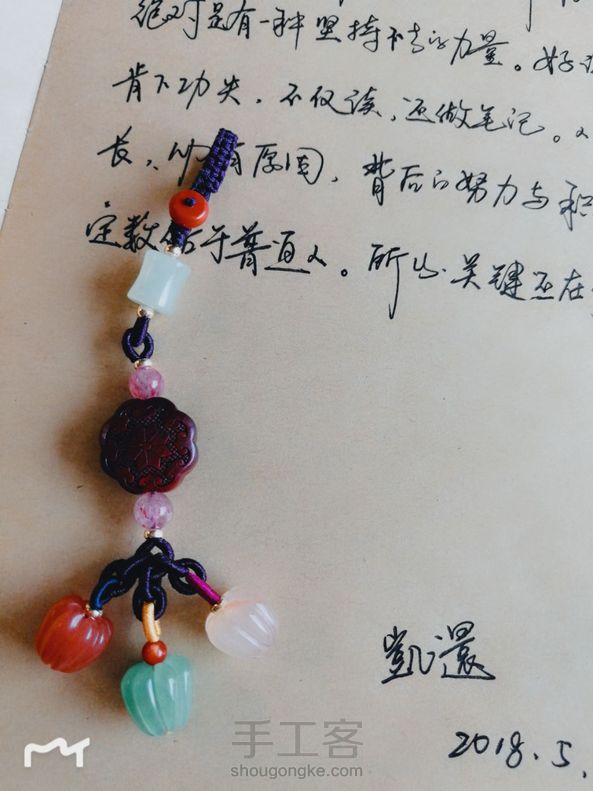 绝对是有一种坚持下去的力量。好
肯下功夫，不仅读，还做笔记。
长，有原因，背后的努力与积
定数倍于普通人。所以关键还在
凯还
2018.5.
手工客
shougongke.com